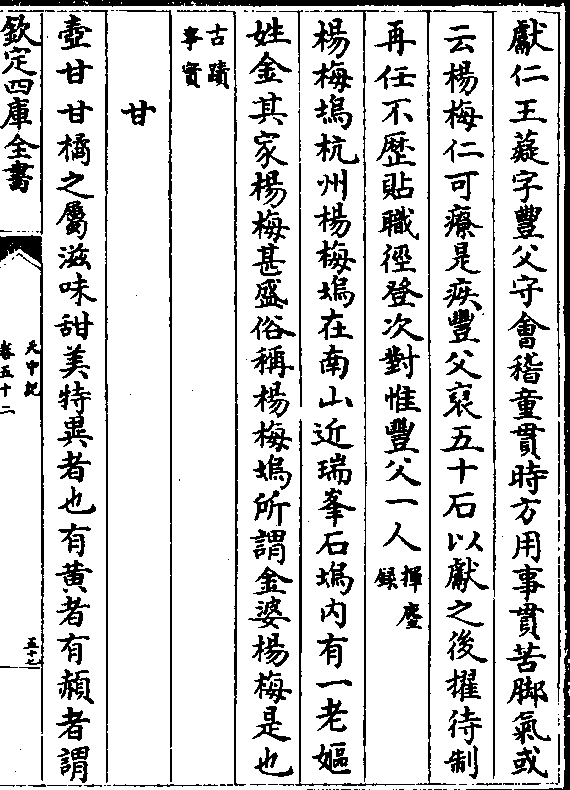 獻仁王薿字豐父守會稽童貫時方用事貫苦脚氣或
云楊梅仁可療是疾豐父裒五十石以獻之後擢待制
再任不歷貼職徑登次對惟豐父一人揮麈録
楊梅塢杭州楊梅塢在南山近瑞峯石塢内有一老嫗
姓金其家楊梅甚盛俗稱楊梅塢所謂金婆楊梅是也
古蹟事實
甘
壺甘甘橘之屬滋味甜美特異者也有黄者有頳者謂
欽定四庫全書
天中記
卷五十二
五十七